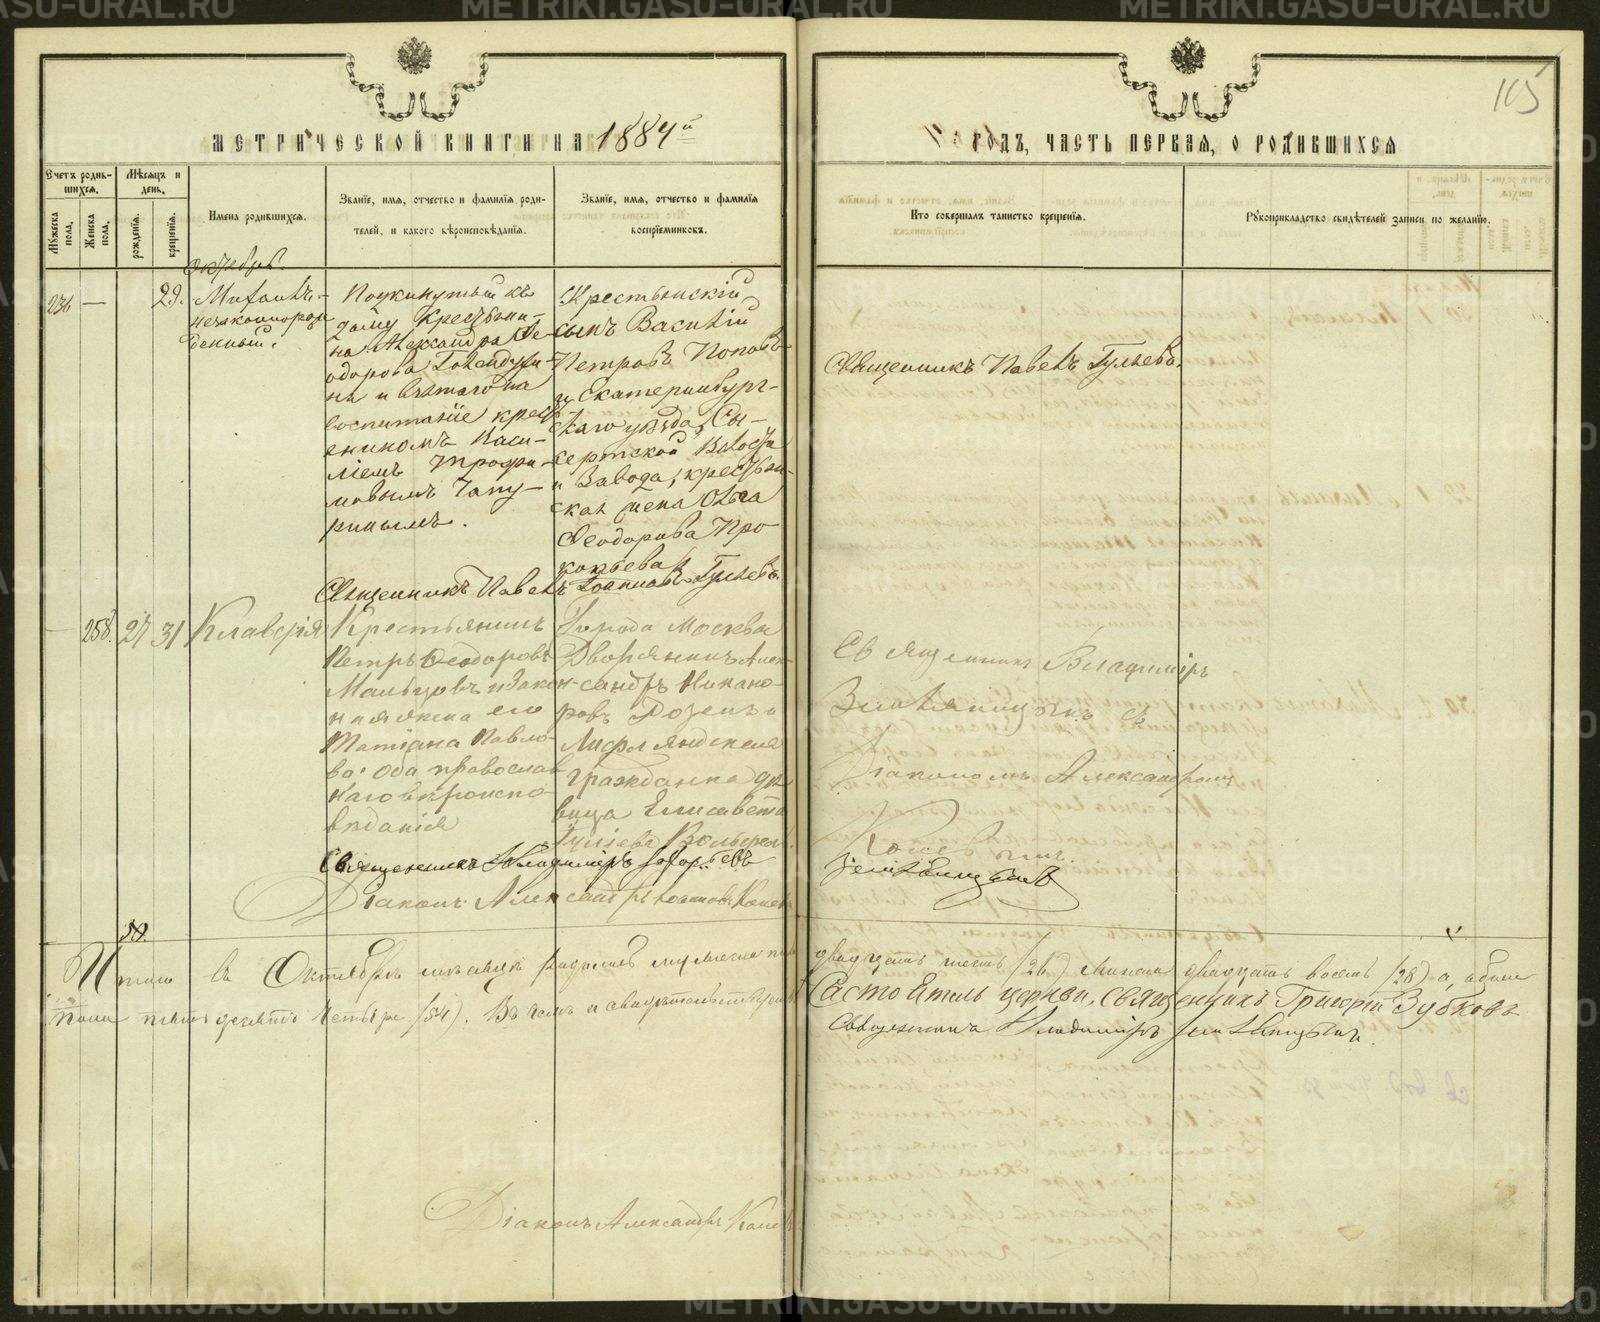 105
МЕТРИЧЕСКОЙ КНИГИ НА 1884й
ГОДЪ, ЧАСТЬ ПЕРВАЯ, О РОДИВШИХСЯ
Счетъ родившихся.
Мужеска пола.
Женска пола.
Мѣсяцъ и день.
рожденія.
крещенія.
Имена родившихся.
Званіе, имя, отчество и фамилія родителей, и какого вѣроисповѣданія.
Званіе, имя, отчество и фамилія воспріемниковъ.
Кто совершалъ таинство крещенія.
Рукоприкладство свидѣтелей записи по желанію.
Октябрь.
236
—
29.
Михаилъ
незаконнорож
денный.
Подкинутый къ
дому крестьяни-
на Александра Ѳе-
одорова
и взятаго на
воспитаніе крест
Васи-
ліемъ Трофи-
мовымъ Чапу-
ринымъ.
Крестьянскій
сынъ Василій
Петровъ Поповъ
и Екатеринбург-
скаго уѣзда, Сы-
сертской Волости
и Завода, крестьян-
ская жена Ольга
Ѳеодорова Про
копьева
Священникъ Павелъ Гуляевъ.
Священникъ Павелъ Іоанновъ Гуляевъ.
258.
27
31
Клавдія
Крестьянинъ
Петръ Ѳеодоровъ
Мальцовъ и закон-
ная жена его
Татіана Павло-
ва. оба православ
наго вѣроиспо-
вѣданія
Города Москвы
Дворянинъ Алек-
сандръ Никано-
ровъ и
Лифляндская
гражданка дѣ
вица Елисавета
Священникъ Владиміръ
Діаконъ Александръ Іоанновъ
Священникъ Владиміръ
съ
Діакономъ Александромъ
54.
Итого въ Октябрѣ мѣсяцѣ родилось мужеска пола
двадцать шесть (26) женска двадцать восемь (28) а обоего
пола пятьдесятъ четыре (54). Въ чемъ и свидѣтельствуемъ
Настоятель церкви, Священникъ Григорій Зубковъ
Священникъ Владиміръ
Діаконъ Александръ
METRIKI.GASO-URAL.RU